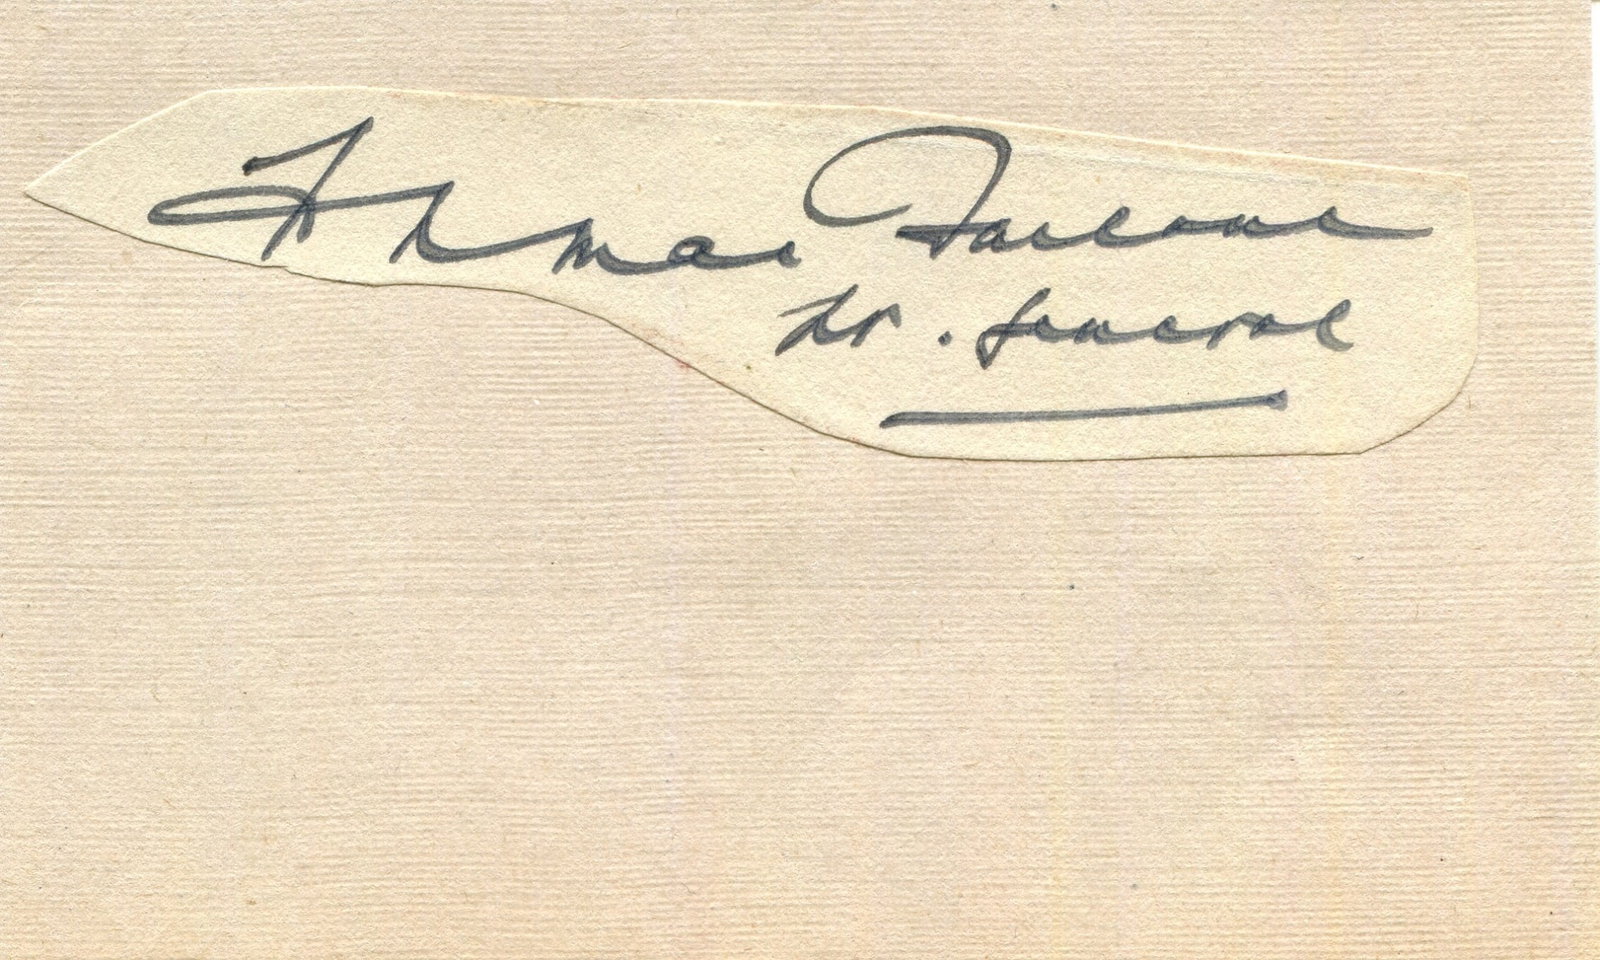 F N Mac Farlane
Lt. General